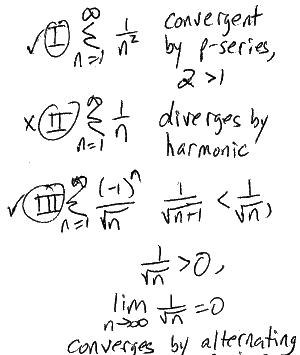 ✓ I ∑_{n=1}^{∞} 1/n² convergent
by p-series,
2 > 1
× II ∑_{n=1}^{∞} 1/n diverges by
harmonic
✓ III ∑_{n=1}^{∞} (-1)^n/√n 1/√(n+1) < 1/√n,
1/√n > 0,
lim_{n→∞} 1/√n = 0
converges by alternating